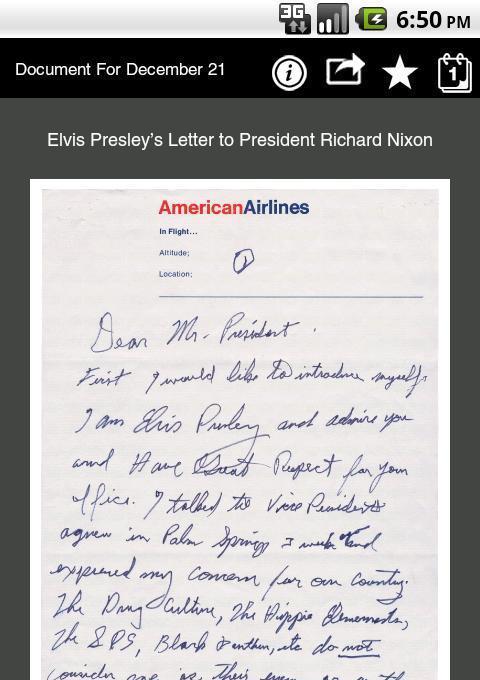 3G 6:50 PM
Document For December 21
1
Elvis Presley's Letter to President Richard Nixon
AmericanAirlines
In Flight...
Altitude;
Location;
1
Dear Mr. President.
First I would like to introduce myself.
I am Elvis Presley and admire you
and Have Great Respect for your
office. I talked to Vice President
agnew in Palm Springs 3 weeks ago and
expressed my concern for our country.
The Drug Culture, The Hippie Elements,
The SDS, Black Panthers, etc do not
consider me as their enemy or as they